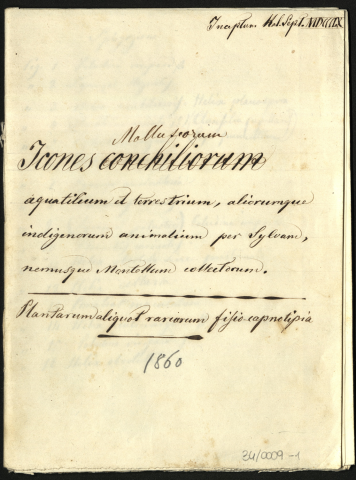 Inceptum Kal. Sept.
Molluscorum
Icones conchiliorum
aquatilium et terrestrium, aliorumque
indigenorum animalium per Sylvam,
nemusque Montellum collectorum.
Plantarum aliquot rariorum fisio-capnotipia
1860
34/0009-1